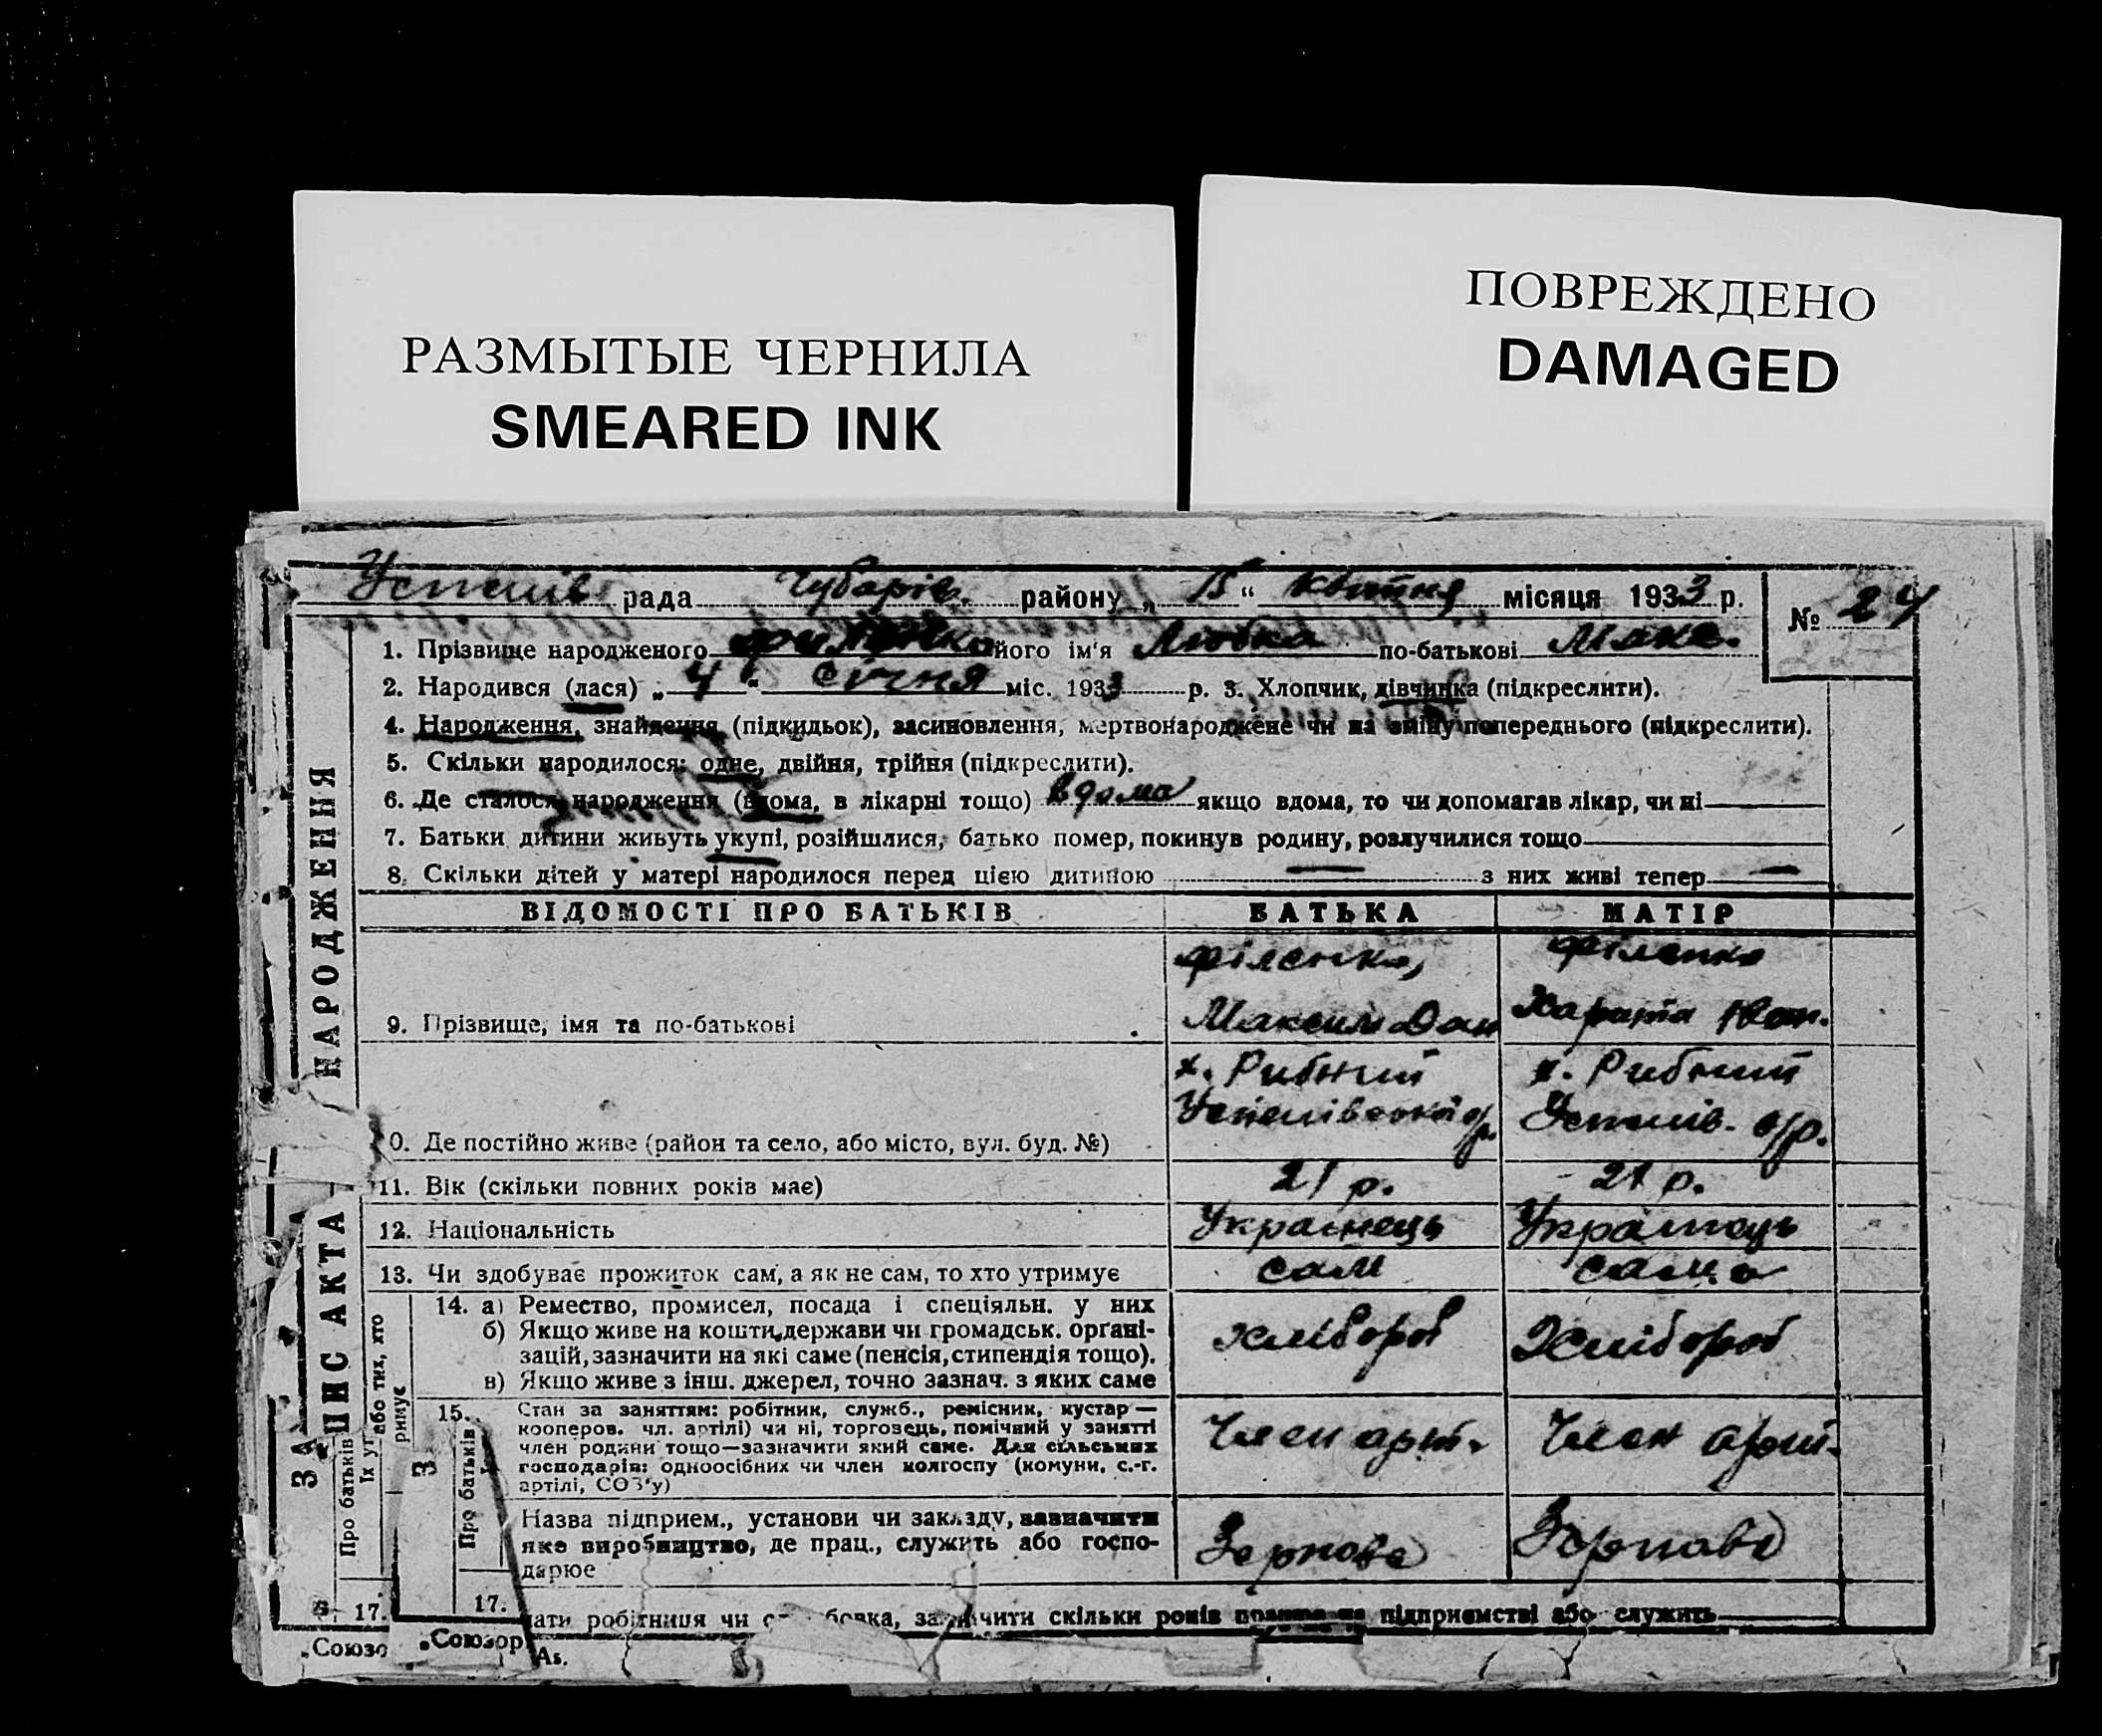 РАЗМЫТЫЕ ЧЕРНИЛА
SMEARED INK
ПОВРЕЖДЕНО
DAMAGED
Успенів рада Чубарів. району „ 15 “ квітня місяця 1933 р.
№ 24
1. Прізвище народженого Філенко його ім'я Любка по-батькові Макс.
2. Народився (лася) „ 4 “ січня міс. 1933 р. 3. Хлопчик, дівчинка (підкреслити).
4. Народження, знайдення (підкидьок), засиновлення, мертвонароджене чи на зміну попереднього (підкреслити).
5. Скільки народилося: одне, двійня, трійня (підкреслити).
6. Де сталося народження (вдома, в лікарні тощо) вдома якщо вдома, то чи допомагав лікар, чи ні
7. Батьки дитини живуть укупі, розійшлися, батько помер, покинув родину, розлучилися тощо
8. Скільки дітей у матері народилося перед цією дитиною — з них живі тепер —
ВІДОМОСТІ ПРО БАТЬКІВ БАТЬКА МАТІР
Філенко, Філенко
9. Прізвище, імя та по-батькові Максим Дан Іван.
х. Рибний х. Рибний
Успенівської с/р. Успенів. с/р.
0. Де постійно живе (район та село, або місто, вул. буд. №)
11. Вік (скільки повних років має) 21 р. 21 р.
12. Національність Українець Українець
13. Чи здобуває прожиток сам, а як не сам, то хто утримує сам сама
14. а) Ремество, промисел, посада і спеціяльн. у них
б) Якщо живе на кошти держави чи громадськ. органі-
зацій, зазначити на які саме (пенсія, стипендія тощо).
в) Якщо живе з інш. джерел, точно зазнач. з яких саме
Хлібороб Хлібороб
15. Стан за заняттям: робітник, служб., ремісник, кустар—
кооперов. чл. артілі) чи ні, торговець, помічний у занятті
член родини тощо—зазначити який саме. Для сільських
господарів: одноосібних чи член колгоспу (комуни, с.-г.
артілі, СОЗ'у)
Член арт. Член арт.
Назва підприєм., установи чи закладу, зазначити
яке виробництво, де прац., служить або госпо-
дарює
Зернове Зернове
17. 17. робітниця чи скількі років підприємстві або служить
„Союзо „Союзор
НАРОДЖЕННЯ
ЗАПИС АКТА
Про батьків
або тих, хто
З
Про батьків